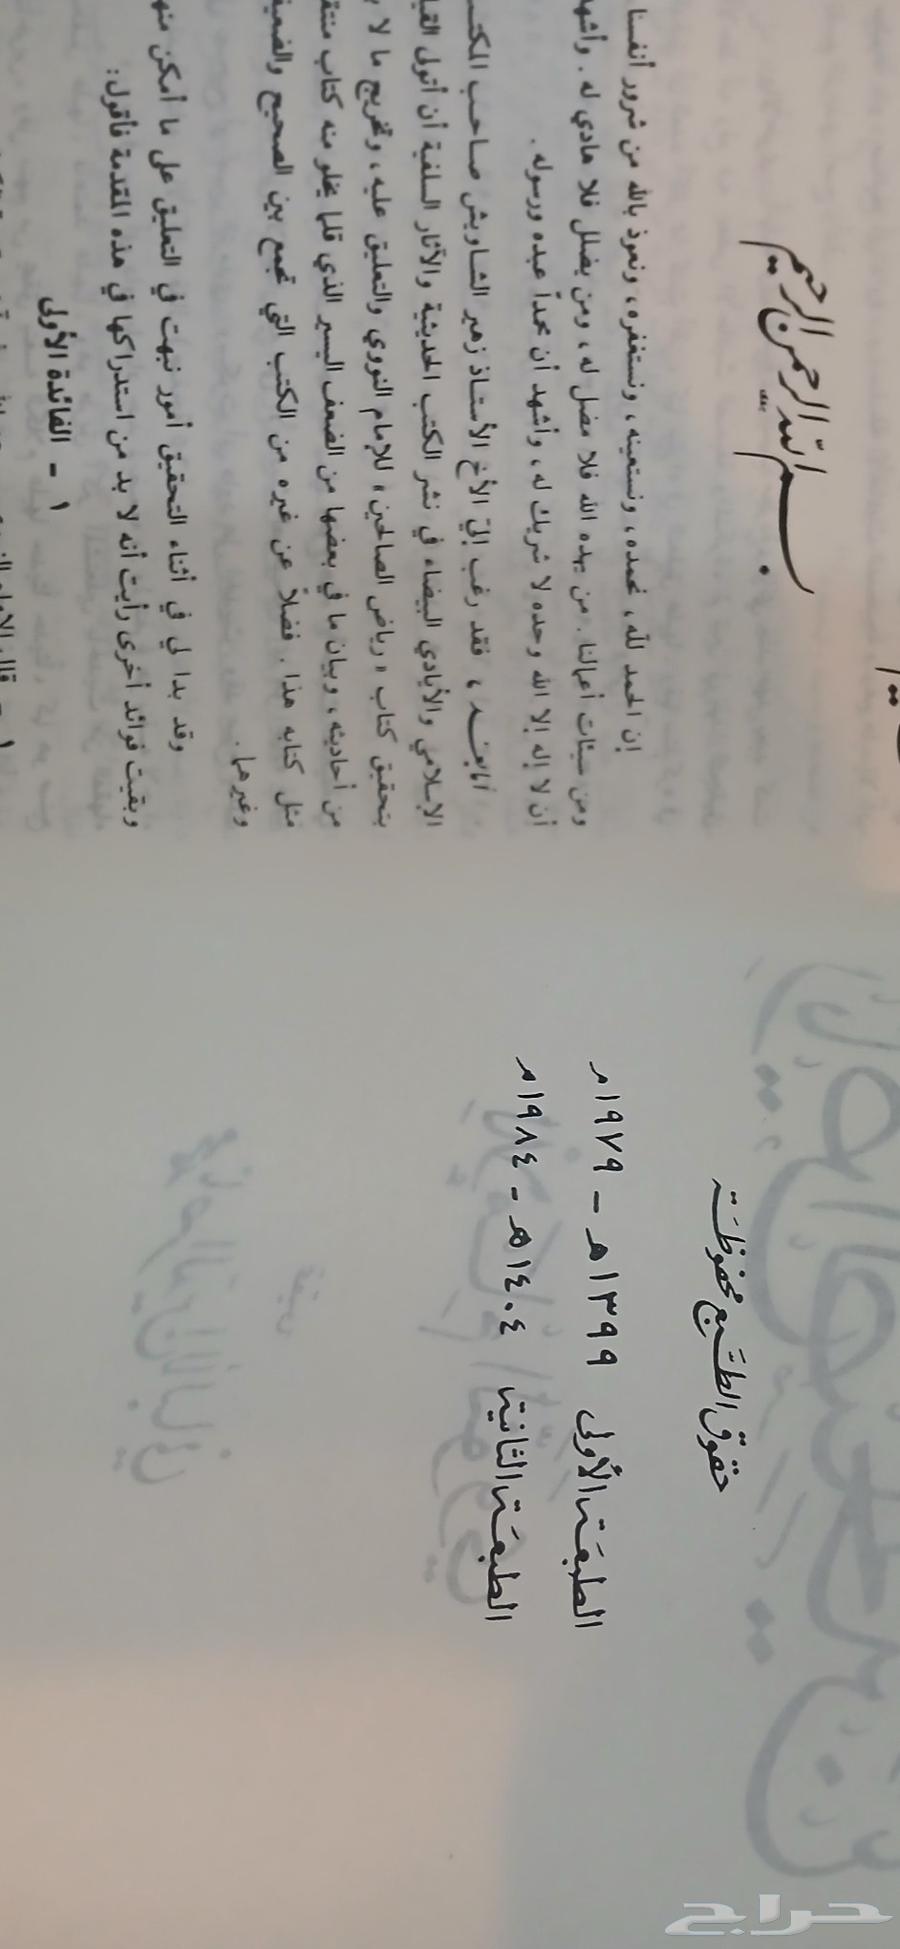 حقوق الطبع محفوظة
الطبعة الأولى ١٣٩٩هـ - ١٩٧٩م
الطبعة الثانية ١٤٠٤هـ - ١٩٨٤م
بسم الله الرحمن الرحيم
إن الحمد لله، نحمده، ونستعينه، ونستغفره، ونعوذ بالله من شرور أنفسنا
ومن سيئات أعمالنا. من يهده الله فلا مضل له، ومن يضلل فلا هادي له. وأشهد
أن لا إله إلا الله وحده لا شريك له، وأشهد أن محمداً عبده ورسوله.
أما بعد، فقد رغب إليّ الأخ الأستاذ زهير الشاويش صاحب
الإسلامي والأيادي البيضاء في نشر الكتب الحديثية والآثار السلفية أن أتولى
بتحقيق كتاب «رياض الصالحين» للإمام النووي والتعليق عليه، وتخريج ما لا
من أحاديثه، وبيان ما في بعضها من الضعف اليسير الذي قلما يخلو منه كتاب
مثل كتابه هذا. فضلاً عن غيره من الكتب التي تجمع بين الصحيح
وغيرهما.
وقد بدا لي في أثناء التحقيق أمور نبهت في التعليق على ما أمكن
وبقيت فوائد أخرى رأيت أنه لا بد من استدراكها في هذه المقدمة فأقول:
١ - الفائدة الأولى
حراج